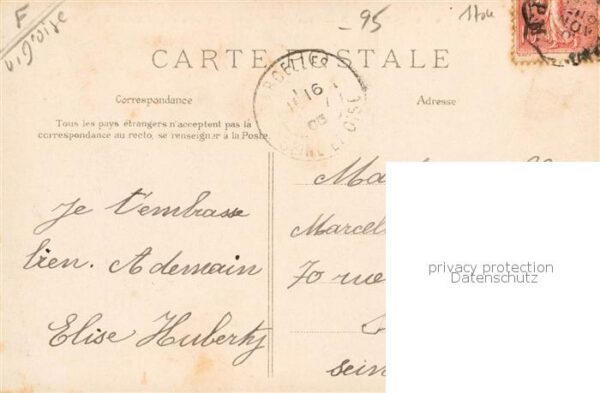 F
-95
CARTE POSTALE
Correspondance
Adresse
Tous les pays étrangers n'acceptent pas la
correspondance au recto, se renseigner à la Poste.
16
SEINE ET OISE
Je t'embrasse
bien. A demain
Elise Huberty
Marcel
70 rue
seine
privacy protection
Datenschutz